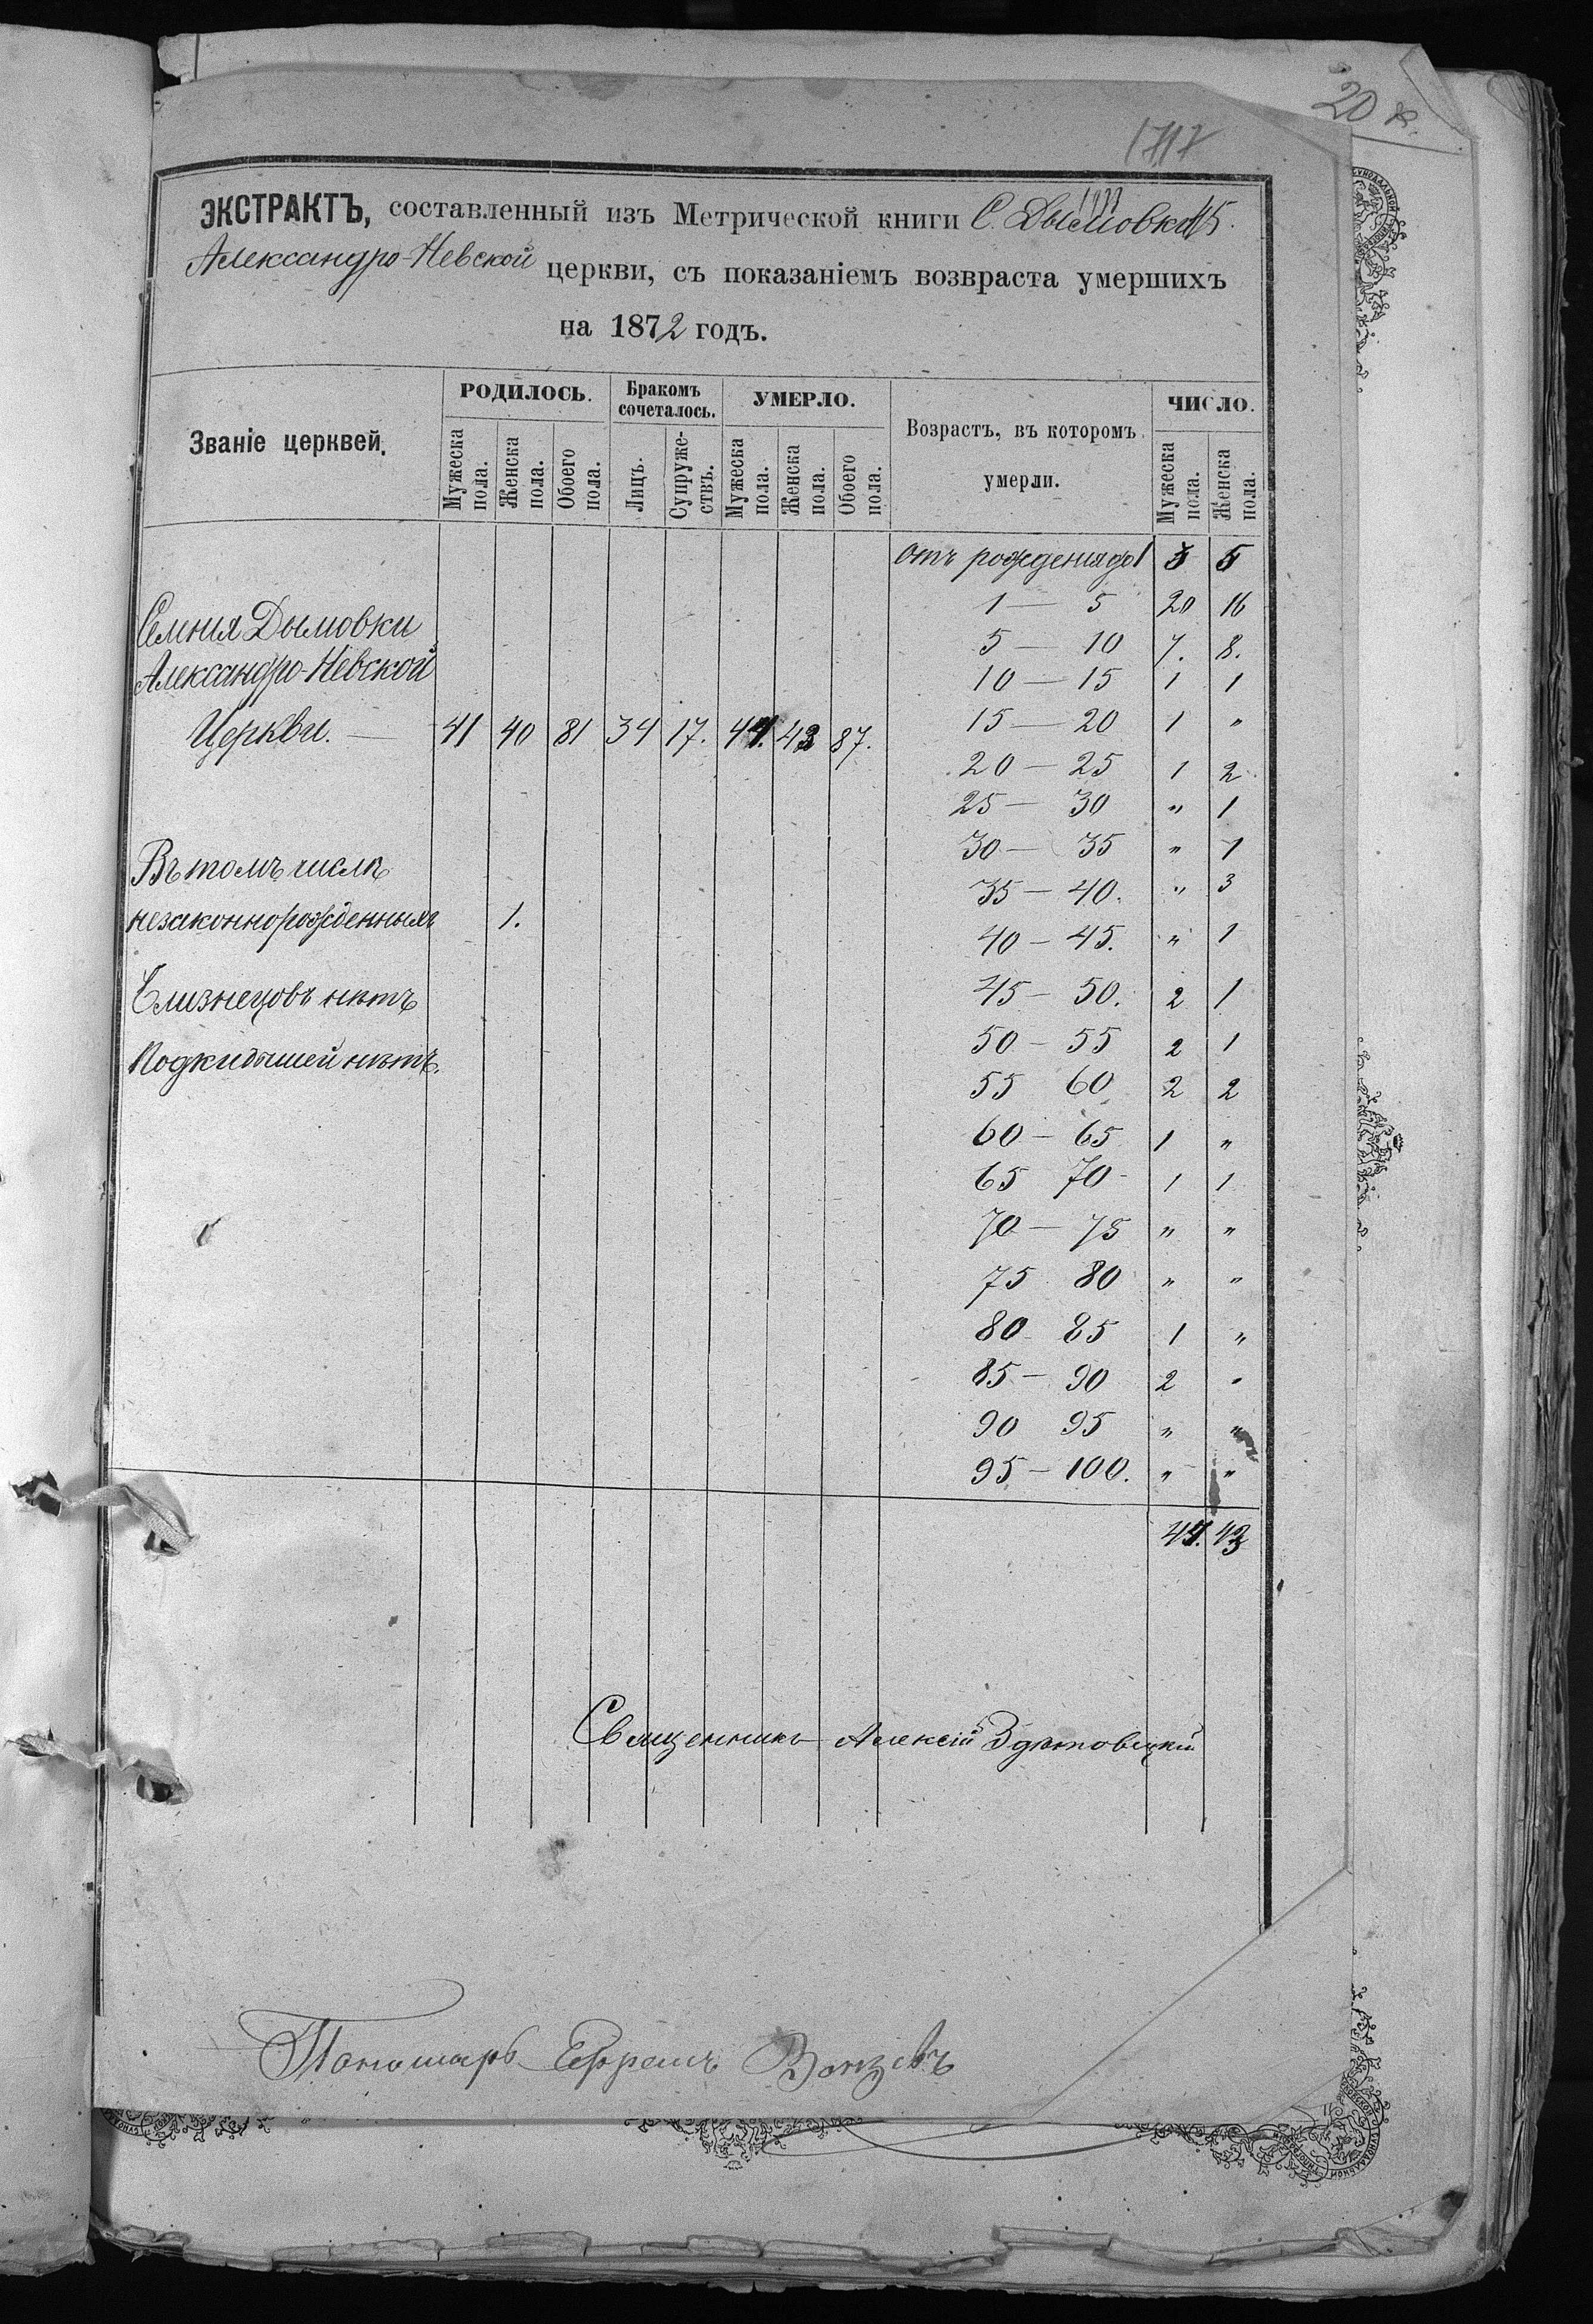 20 к.
1717
ЭКСТРАКТЪ, составленный изъ Метрической книги С. Дымовка
Александро-Невской церкви, съ показаніемъ возвраста умершихъ
на 1872 годъ.
Званіе церквей.
РОДИЛОСЬ. Бракомъ сочеталось. УМЕРЛО. Возрастъ, въ которомъ умерли. ЧИСЛО.
Мужеска пола. Женска пола. Обоего пола. Лицъ. Супружествъ. Мужеска пола. Женска пола. Обоего пола. Мужеска пола. Женска пола.
отъ рожденія до 1 3 5
1 — 5 20 16
Селенія Дымовки
5 — 10 7. 8.
Александро-Невской
10 — 15 1 1
Церкви. — 41 40 81 34 17. 44. 43 87.
15 — 20 1 "
20 — 25 1 2
25 — 30 " 1
30 — 35 " 1
Въ томъ числѣ
35 — 40. " 3
незаконнорожденныхъ 1.
40 — 45. " 1
Близнецовъ нѣтъ
45 — 50. 2 1
Подкидышей нѣтъ.
50 — 55 2 1
55 60 2 2
60 — 65 1 "
65 70 1 1
70 — 75 " "
75 80 " "
80 85 1 "
85 — 90 2 "
90 95 " "
95 — 100. " "
44. 43
Священникъ Алексій
Пономарь Ефремъ